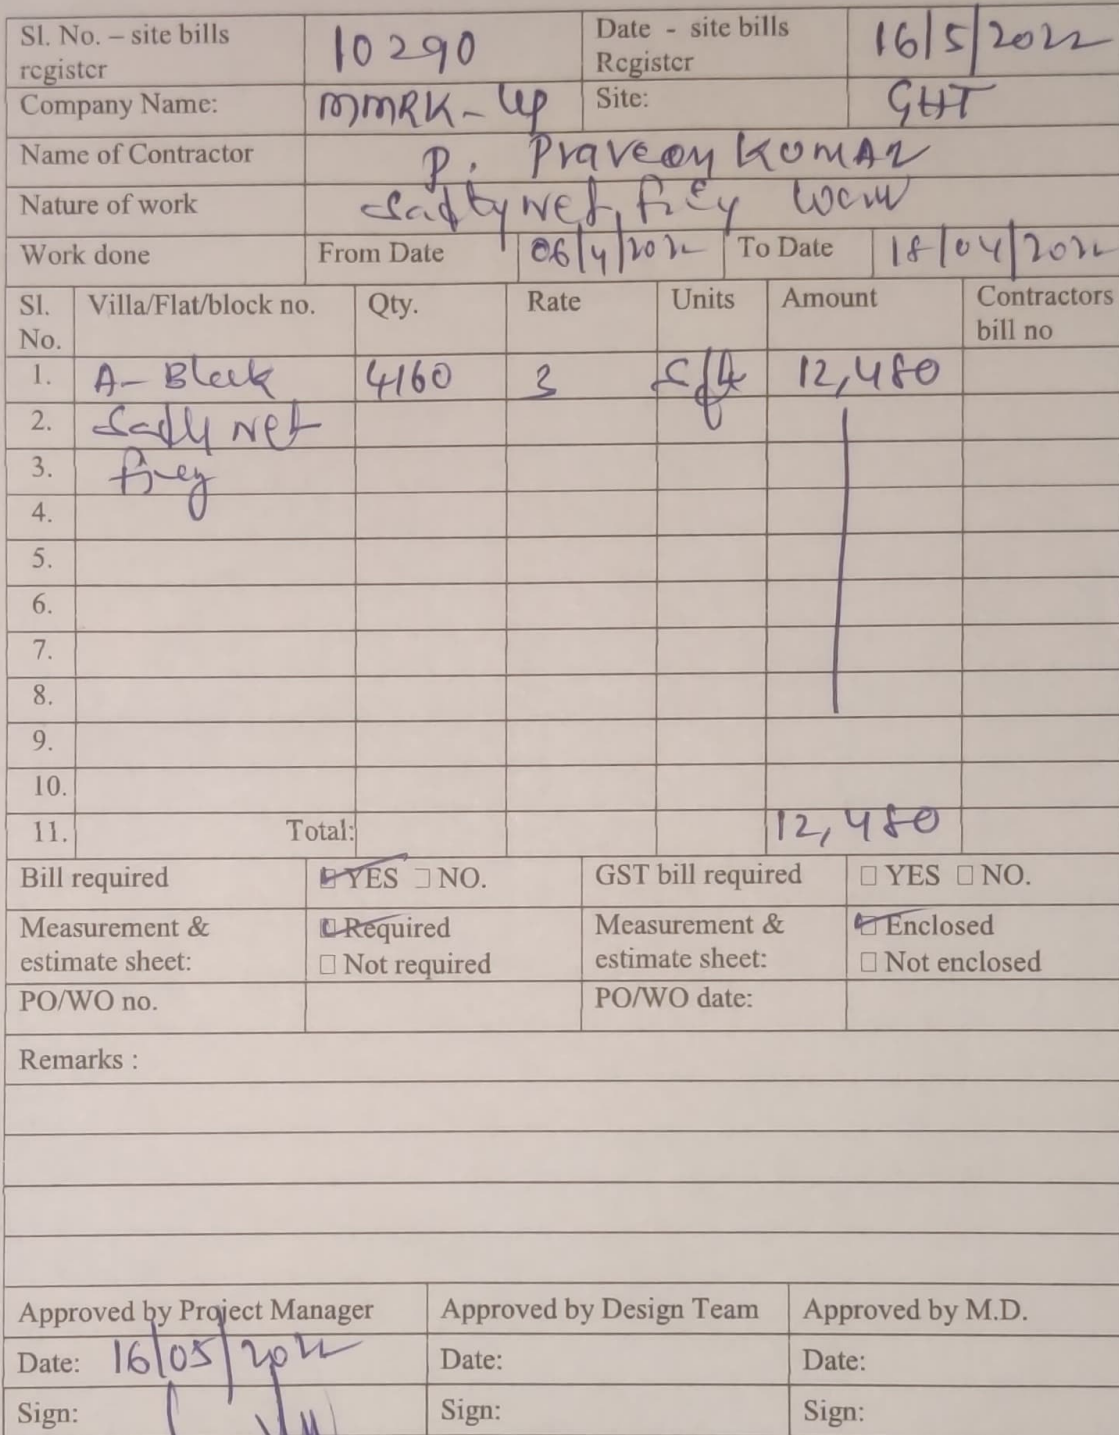 Sl. No. – site bills register 10290 Date - site bills Register 16/5/2022
Company Name: MMRK-llp Site: GHT
Name of Contractor P. Praveen KUMAR
Nature of work Safty Net, fixy work
Work done From Date 06/4/2022 To Date 18/04/2022
Sl. No. Villa/Flat/block no. Qty. Rate Units Amount Contractors bill no
1. A- Block 4160 3 Sft 12,480
2. Safty Net
3.
4.
5.
6.
7.
8.
9.
10.
11. Total: 12,480
Bill required YES NO. GST bill required YES NO.
Measurement & estimate sheet: Required Not required Measurement & estimate sheet: Enclosed Not enclosed
PO/WO no. PO/WO date:
Remarks :
Approved by Project Manager Approved by Design Team Approved by M.D.
Date: 16/05/2022 Date: Date:
Sign: Sign: Sign: